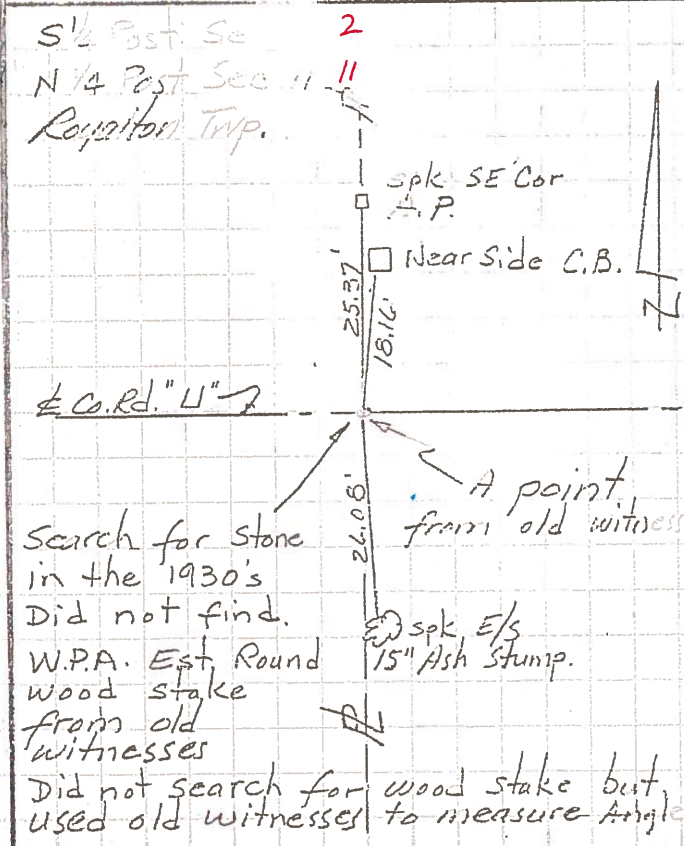 S ¼ Post Se 2
N ¼ Post Sec 11 11
Royalton Twp.
spk SE Cor
A.P.
Near Side C.B.
25.37'
18.16'
℄ Co.Rd. "U"
26.08'
A point
from old witness
Search for Stone
in the 1930's
Did not find.
W.P.A. Est. Round
wood stake
from old
witnesses
spk E/s
15" Ash Stump.
Did not search for wood stake but
used old witnesses to measure Angle
N